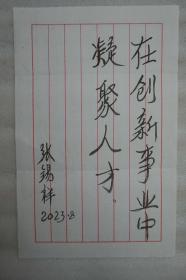 在创新事业中
凝聚人才。
张锡祥
2023.8